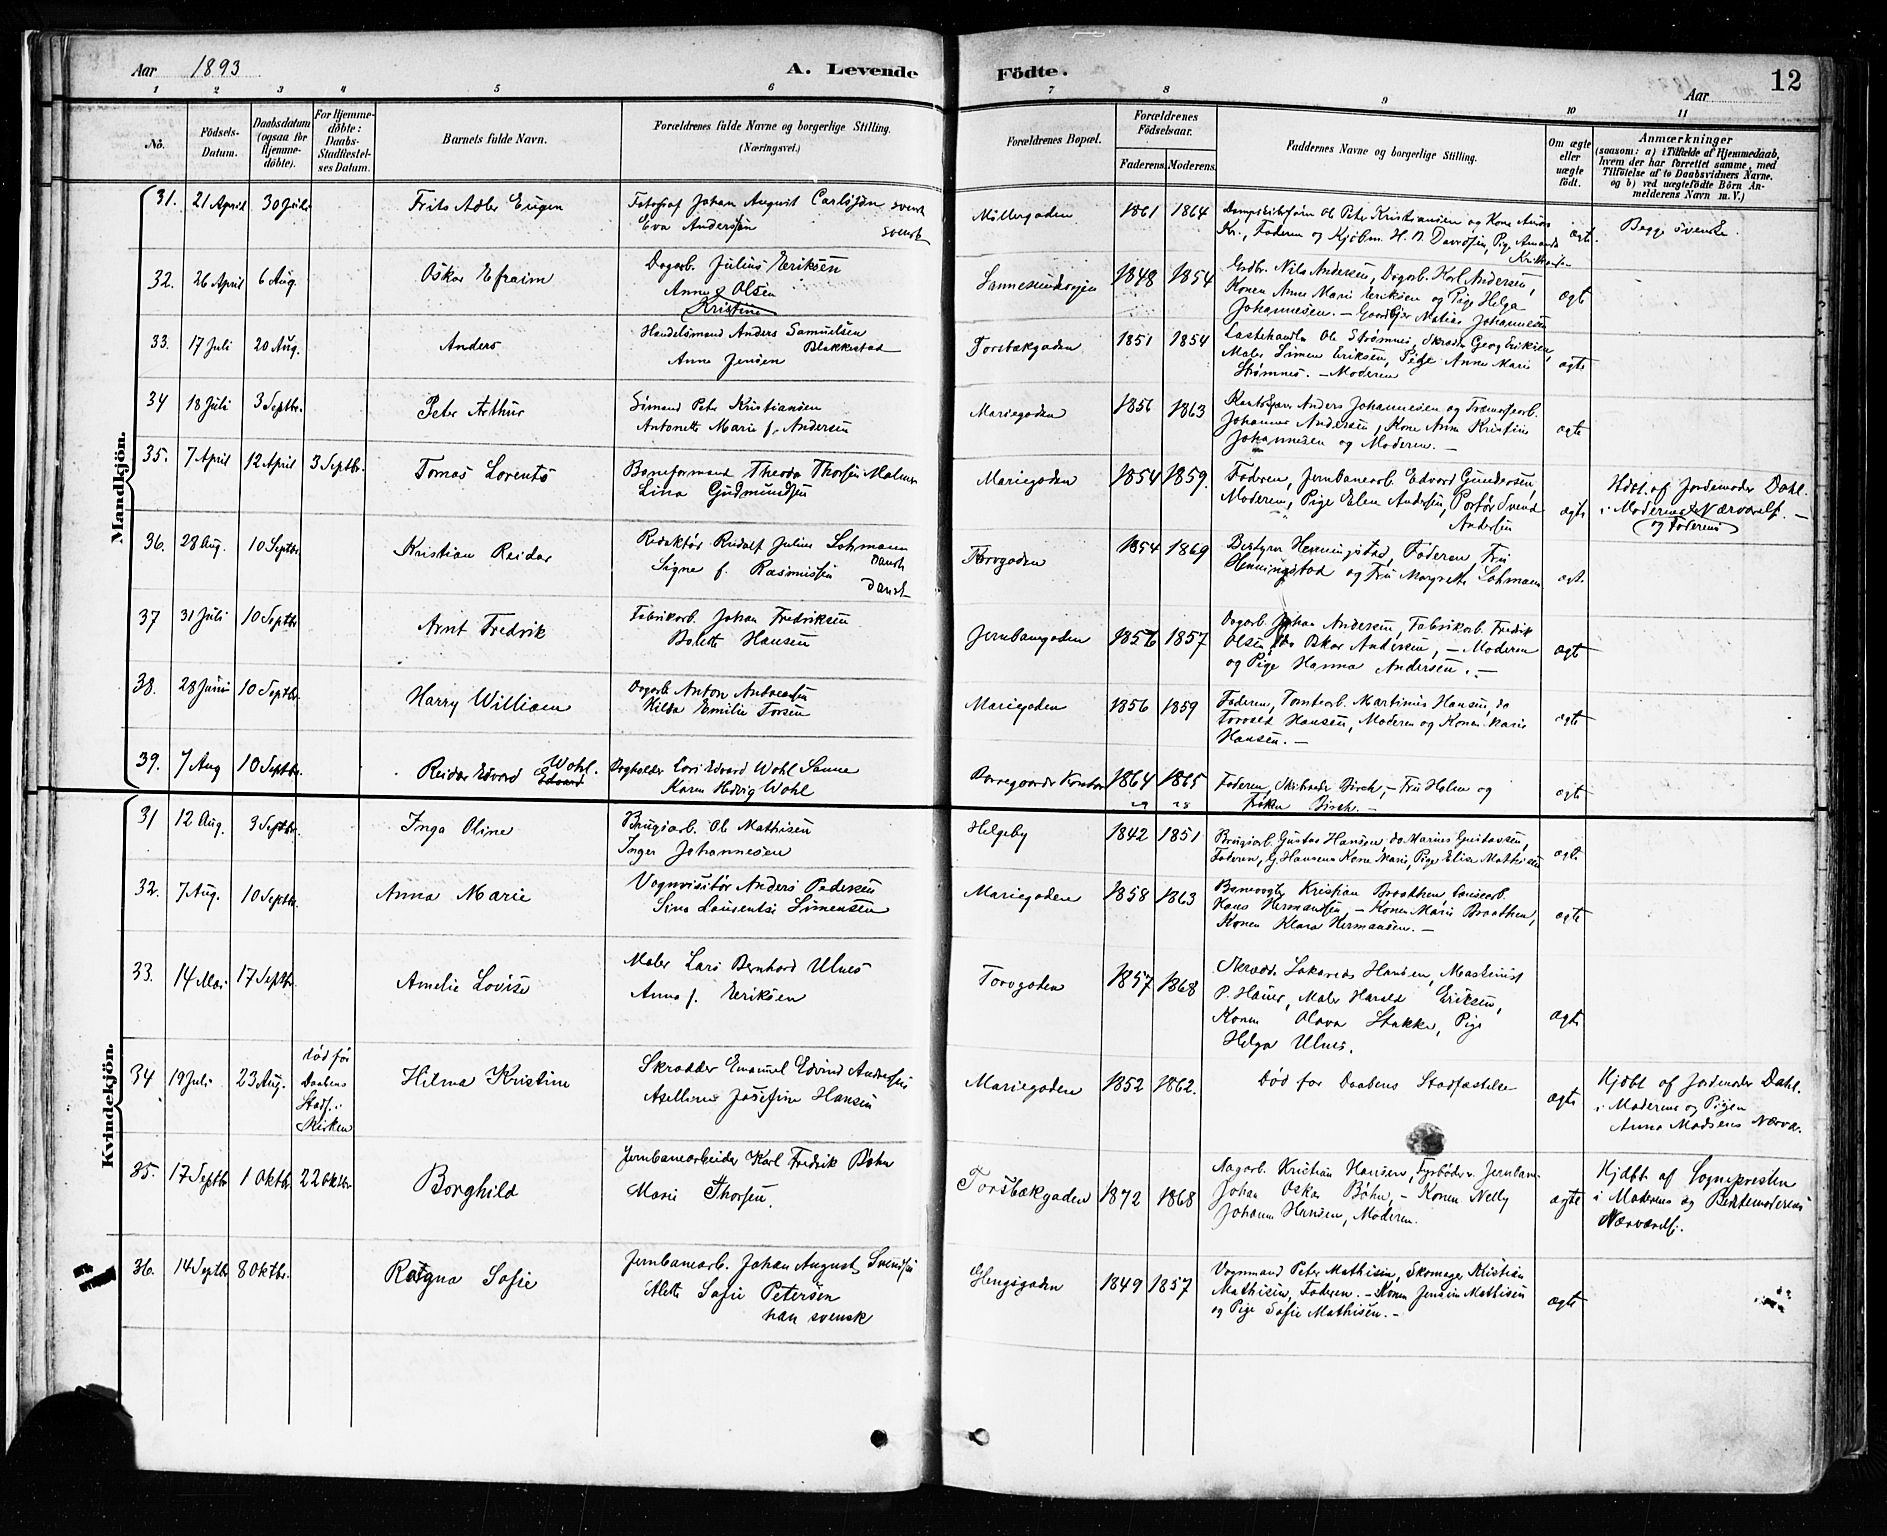 Aar 1893 A. Levende Födte. Aar 12
1 2 3 4 5 6 7 8 9 10 11
No.
Födsels-
Datum.
Daabsdatum
(ogsaa for
Hjemme-
döbte).
For Hjemme-
döbte:
Daabs-
Stadfæstel-
ses Datum.
Barnets fulde Navn.
Forældrenes fulde Navne og borgerlige Stilling.
(Næringsvei.)
Forældrenes Bopæl.
Forældrenes
Födselsaar.
Faderens. Moderens.
Faddernes Navne og borgerlige Stilling.
Om ægte
eller
uægte
födt.
Anmærkninger
(saasom: a) i Tilfælde af Hjemmedaab,
hvem der har forrettet samme, med
Tilföielse af to Daabsvidners Navne.
og b) ved uægtefödte Börn An-
melderens Navn m. V.)
Mandkjön.
31. 21 April 30 Juli Frits Adler Eugen
Fotograf Johan August Carlsson svensk
Eva Anderssen svensk
Møllergaden 1861 1864
Kr., Faderen og Kjøbm. H. B. Davidsen, Pige Amanda
ægte. Begge svenske.
32. 26 April 6 Aug. Oskar Efraim
Dagarb. Julius Eriksen
Anne Olsen
Kristine
Sannesundsveien 1848 1854
Gudbr. Nils Andersen, Dagarb. Karl Andersen,
Konen Anne Marie Eriksen og Pige Helga
Johannesen. – Gaardbr Matias Johannesen
ægte
33. 17 Juli 20 Aug. Anders
Handelsmand Anders Samuelsen
Blakkestad
Anne Jensen
Torsbækgaden 1851 1854
Lastehandler Ole Strømnes, Skræder Georg Eriksen,
Maler Simen Eriksen, Pige Anne Marie
Strømnes. – Moderen
ægte
34 18 Juli 3 Septbr. Peter Arthur
Sømand Peter Kristiansen
Antonette Marie f. Andersen
Mariegaden 1856 1863
Anders Johannesen og
Johannes Andersen, Kone Anne Kristine
Johannesen og Moderen. –
ægte
35. 7 April 12 April 3 Septbr. Tomas Lorents
Baneformand Theodor Thorsen Malmen
Lina Gudmundsen
Mariegaden 1854 1859.
Faderen, Jernbanearb. Edvard Gundersen,
Moderen, Pige Elen Andersen, Portør Svend
Andersen
ægte
Hdbt. af Jordemoder Dahl.
i Moderens Nærværelse. –
og Faderens
36. 28 Aug. 10 Septbr Kristian Reidar
Redaktør Rudolf Julius Lohmann
Dansk
Signe f. Rasmussen
Dansk
Torvgaden 1854 1869
Bestyrer Henningstad, Faderen Fru
Henningstad og Fru Margrethe Lohmann
ægte.
37 31 Juli 10 Septbr Arnt Fredrik
Fabrikarb. Johan Fredriksen
Bolette Hansen
Jernbanegaden 1856 1857
Dagarb. Johan Andersen, Fabrikarb. Fredrik
Olsen, do Oskar Andersen, – Moderen
og Pige Hanna Andersen. –
ægte
38. 28 Juni 10 Septbr Harry William
Dagarb. Anton Andreasen
Hilda Emilie Torsen
Mariegaden 1856 1859
Faderen, Tomtearb. Martinus Hansen, do
Torvald Hansen, Moderen og Konen Marie
Hansen. –
ægte
39. 7 Aug 10 Septbr. Reidar Edvard Edvard Wohl.
Bogholder Edvard Wohl Sanne
Karen Hedvig Wohl
Borregaards Kontor 1864 1865
29 28
Faderen, Birch, – Fru Helen og
Birch. –
ægte
Kvindekjön.
31 12 Aug. 3 Septbr. Inga Oline
Brugsarb. Ole Mathisen
Inger Johannesen
Helgeby 1842 1851
Brugsarb. Gustav Hansen, do Marius Gustavsen,
Faderen, G. Hansens Kone Marie, Pige Elise Mathisen
ægte
32. 7 Aug. 10 Septbr. Anna Marie
Vognvisitør Anders Pedersen
Sina Laurentse Simensen
Mariegaden 1858 1863
Banevogter Kristian Braathen,
Hans Hermansen, – Konen Marie Braathen,
Konen Klara Hermansen. –
ægte
33. 14 Mai 17 Septbr. Amelie Lovise
Maler Lars Bernhard Ulnes
Anna f. Eriksen
Torvgaden 1857 1868
Skrædder Sakarias Hansen, Maskinist
P. Hauer, Maler Harald Eriksen,
Konen Olava Stakke, Pige
Helga Ulnes.
ægte
34 19 Juli 23 Aug. død før
Daabens
Stadf. i
Kirken
Hilma Kristine
Skrædder Emanuel Edvind Andersen
Axelline Josefine Hansen
Mariegaden 1852 1862.
Død før Daabens Stadfæstelse
ægte
Hjdbt af Jordemoder Dahl.
i Moderens og Pigen
Anna Madsens Nærvær.
35. 17 Septbr 1 Oktbr. 22 Oktbr. Borghild
Jernbanearbeider Karl Fredrik Bøhn
Marie Thorsen.
Torsbækgaden 1872 1868
Kristian Hansen, Fyrbøder v. Jernban.
Johan Oskar Bøhn, – Konen Nelly
Johanne Hansen, Moderen.
ægte
Hjdbt af Sogneprесten
i Moderens og Bedstemoderens
Nærværelse.
36. 14 Septbr 8 Oktbr. Ragna Sofie
Jernbanearb. Johan August Svendsen
Alette Sofie Petersen
han svensk
Glengsgaden 1849 1857
Vognmand Peter Mathisen, Skomager Kristian
Mathisen, Faderen. – Konen Jensine Mathisen
og Pige Sofie Mathisen. –
ægte